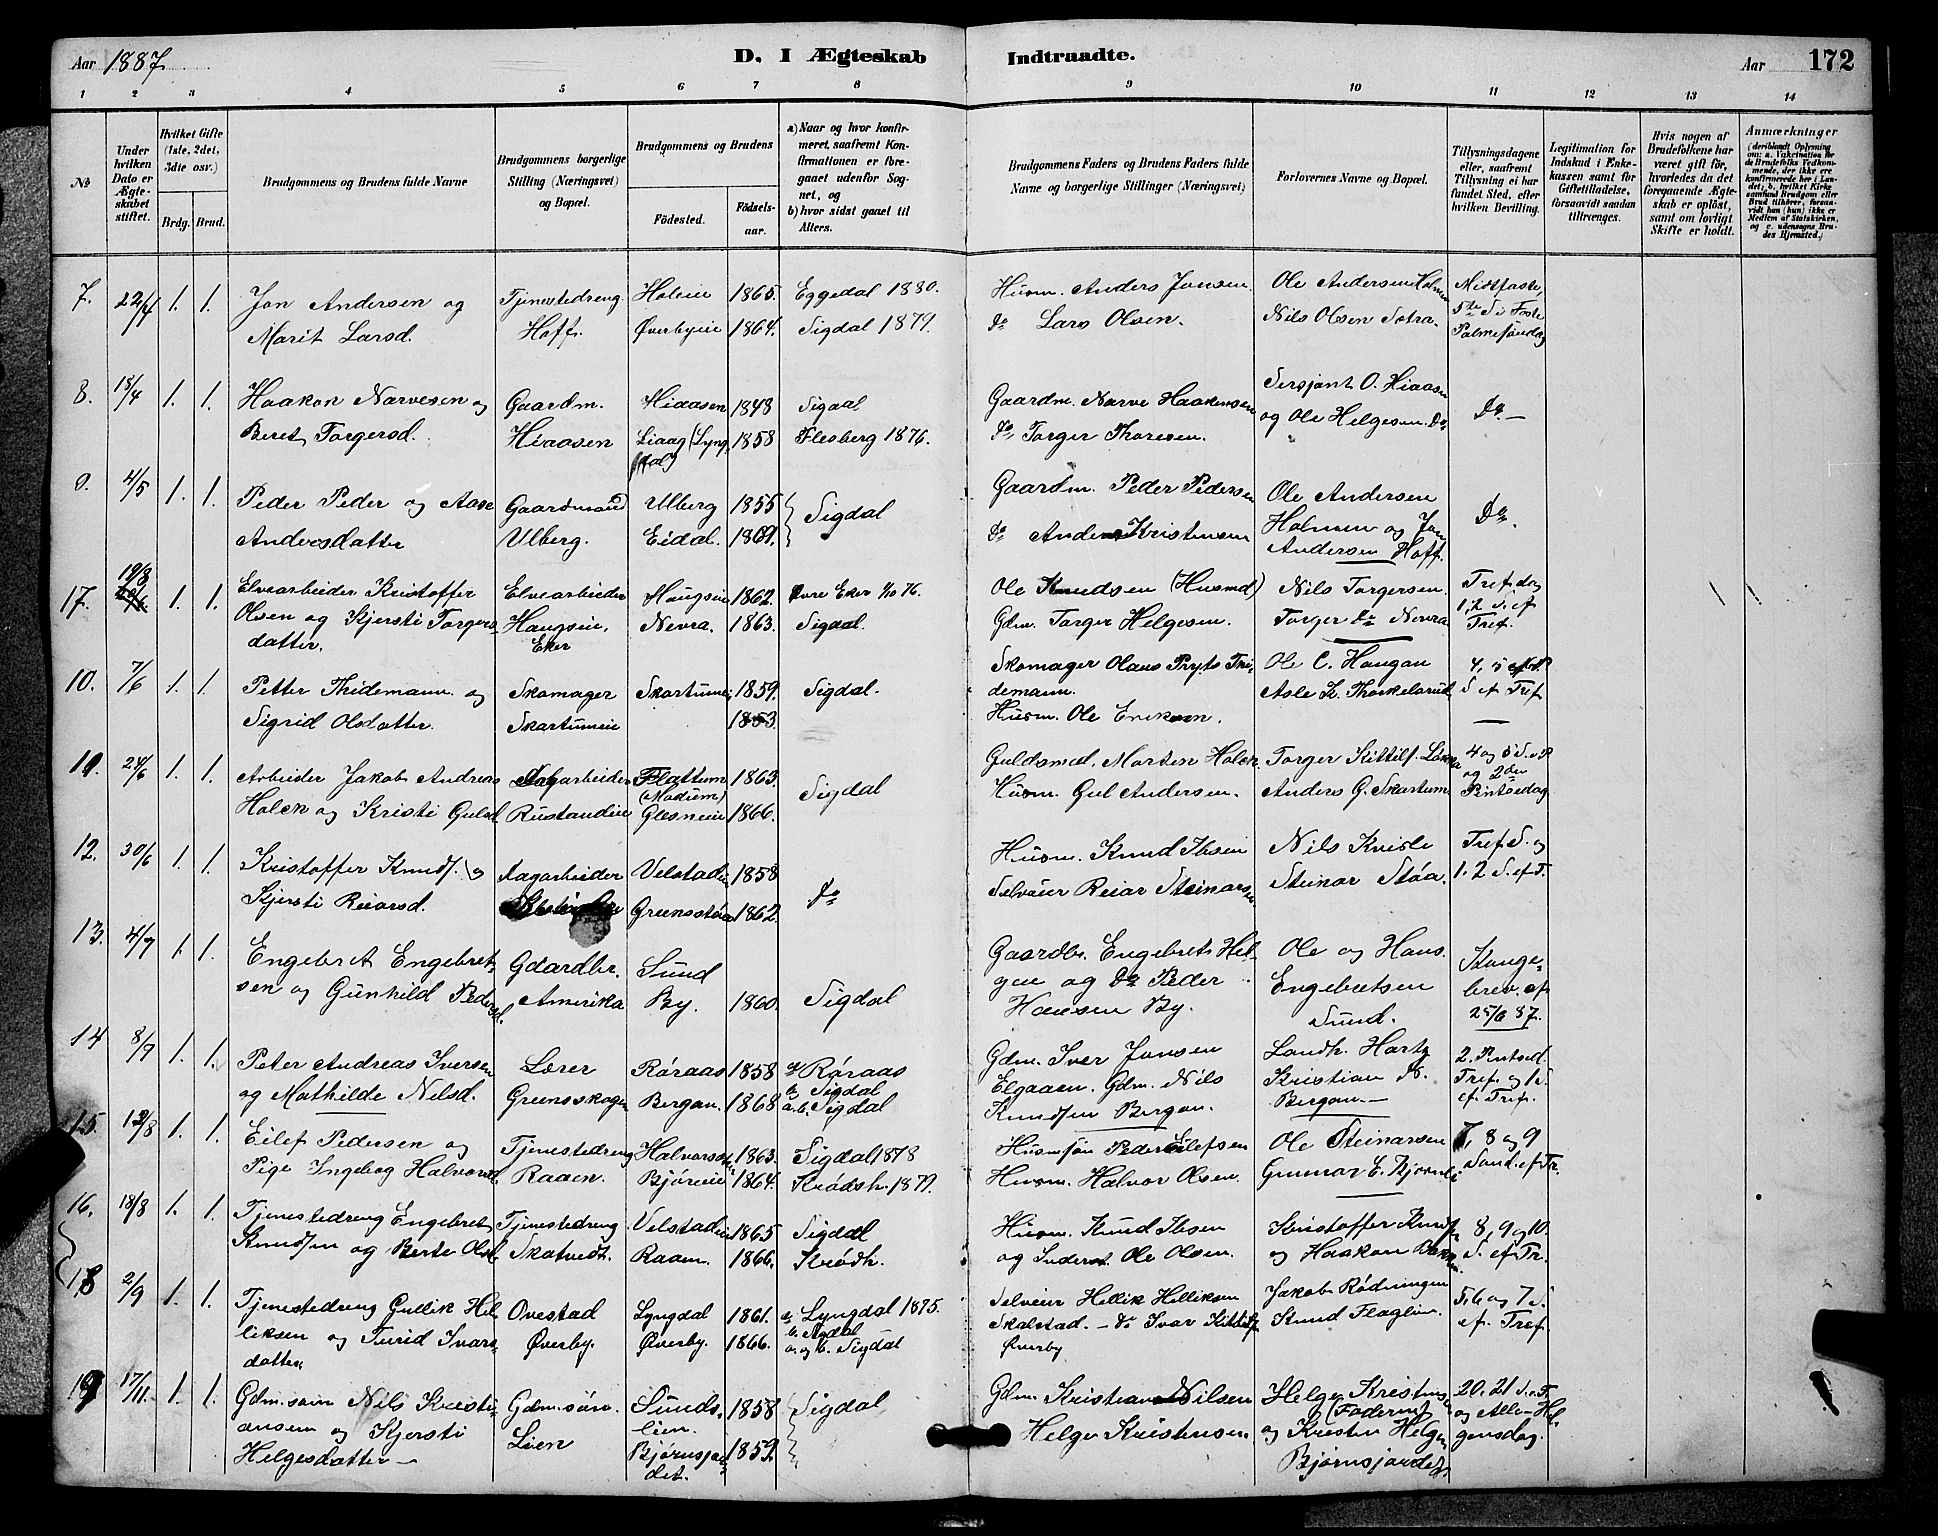 Aar 1887 D. I Ægteskab Indtraadte. Aar 172
1 2 3 4 5 6 7 8 9 10 11 12 13 14
No
Under hvilken Dato er Ægteskabet stiftet.
Hvilket Gifte (1ste, 2det, 3dte osv.)
Brdg. Brud.
Brudgommens og Brudens fulde Navne
Brudgommens borgerlige Stilling (Næringsvei) og Bopæl.
Brudgommens og Brudens
Födested. Födsels-aar.
a) Naar og hvor konfirmeret, saafremt Konfirmationen er foregaaet udenfor Sognet, og
b) hvor sidst gaaet til Alters.
Brudgommens Faders og Brudens Faders fulde Navne og borgerlige Stillinger (Næringsvei)
Forlovernes Navne og Bopæl.
Tillysningsdagene eller, saafremt Tillysning ei har fundet Sted, efter hvilken Bevilling.
Legitimation for Indskud i Enkekassen samt for Giftetilladelse, forsaavidt saadan tiltrænges.
Hvis nogen af Brudefolkene har været gift før, hvorledes da det foregaaende Ægteskab er opløst, samt om lovligt Skifte er holdt.
Anmærkninger (deriblandt Oplysning om: a. Vakcination for de Brudefolks Vedkommende, der ikke ere konfirmerede her i Landet; b. hvilket Kirkesamfund Brudgom eller Brud tilhører, forsaavidt han (hun) ikke er Medlem af Statskirken, og c. udensogns Brudes Hjemsted.)
7. 22/4 1. 1. Jon Andersen og Tjenestedreng Holeie 1865. Eggedal 1880. Husm. Anders Jonsen Ole Andersen Holmen Midtfaste,
Marit Larsd. Hoff. Øverbyeie 1864. Sigdal 1879. Do Lars Olsen. Nils Olsen Sotra. 5te Si Faste Palmesøndag
8. 18/4 1. 1. Haakon Narvesen og Gaardm. Hiaasen 1848 Sigdal Gaardm. Narve Haakensen Sersjant O. Hiaasen
Beret Torgersd. Hiaasen Liaag (Lyngdal) 1858 Flesberg 1876. Do Torger Thoresen. og Ole Helgesen. Do Do.
9. 4/5 1. 1. Peder Peder og Aase Gaardmand Ulberg 1855 Sigdal Gaardm. Peder Pedersen Ole Andersen Do.
Andersdatter Ulberg. Eidal. 1861. Do Anders Kristensen Holmen og Jon Andersen Hoff.
17. 19/8 1. 1. Elvearbeider Kristoffer Elvearbeider Haugseie 1862. Øvre Eker 1/10 76. Ole Knudsen (Husmd) Nils Torgersen. Tref. dag
Olsen og Kjersti Torgersdatter. Haugseie, Eker Nevra. 1863. Sigdal. Gdm. Torger Helgesen. Torger Do Nevra 1. 2 S. ef Tref.
10. 7/6 1. 1. Petter Thidemann og Skomager Skartumeie 1859. Sigdal. Skomager Olaus Pryts Thidemann. Ole C. Haugan
Sigrid Olsdatter. Skartumeie 1853. Husm. Ole Eriksen. Asle K. Thorkelsrud S ef Tref
11. 24/6 1. 1. Arbeider Jakob Andreas Dagarbeider Flattum (Modum) 1863. Sigdal Guldsmed, Morten Holck Torger Kittilf. Løken 4 og 5 S. e P og 2den
Holck og Kristi Gulsd. Rustandeie Glesneie 1866. Husm. Gul Andersen. Anders G. Skartum Pintsedag
12. 30/6 1. 1. Kristoffer Knuds. og Dagarbeider Velstadeie 1858 Do Husm. Knud Ibsen Nils Kvisle Tref S. og
Kjersti Reiarsd. Grensstøa 1862. Selveier Reiar Steinarsen Steinar Støa. 1. 2 S. ef T.
13. 4/7 1. 1. Engebret Engebretsen og Gunhild Pedersd. Gaardbr. Amerika Sund By. 1860. Sigdal Gaardbr. Engebret Helgen og Do Peder Hansen By. Ole og Hans Engebretsen Sund. Kongebrev ef 25/6 87.
14 8/7 1. 1. Peter Andreas Iversen Lærer Røraas 1858 a Røraas b. Sigdal Gdm. Iver Jonsen Landh. Hartz 2. Pintsed.
og Mathilde Nilsd. Grensskogen Bergan. 1868 a.b. Sigdal Elgaaen. Gdm. Nils Knudsen Bergan. Kristian N. Bergan. Tref. og 1 S. ef Tref.
15. 12/8 1. 1. Eilef Pedersen og Tjenestedreng 1863. Sigdal 1878 Husm søn Peder Eilefsen Ole Steinarsen 7, 8 og 9
Pige Ingebog Halvorsd. Raaen. Bjøreie 1864. Krødsh. 1879. Husm. Halvor Olsen. Gunnar E. Bjørnli Sønd. ef Tr.
16. 18/8 1. 1. Tjenestedreng Engebret Tjenestedreng Velstadeie 1865 Sigdal Husm. Knud Ibsen Kristoffer Knuds. 8, 9 og 10.
Knudsen og Berte Olsd. Skatvedt. Raaen. 1866. Krødh. og Inderst. Ole Olsen. og Haakon S. ef Tr.
18 2/9 1. 1. Tjenestedreng Gullik Helliksen og Turid Ivarsdatter. Ovestad Lyngdal 1861. a. Lyngdal 1875. Selveier Hellik Helliksen Jakob Rødningen 5, 6 og 7 S.
Øverby. Øverby. 1866. b. Sigdal a. og b. Sigdal Skalstad. – Do Ivar Kittilsen Øverby Knud Flaglien. ef Tref.
19 17/11. 1. 1. Gdm. søn Nils Kristiansen og Kjersti Helgesdatter Gdm. søn. Lien Sundslien. 1858 Sigdal Gdm. Kristian Nilsen Helge Kristensen (Faderen) 20. 21 S. e. T.
Bjørnsjordet. 1859. Helge Kristensen og Kristen Helgesen Bjørnsjordet og Alle-Helgensdag.